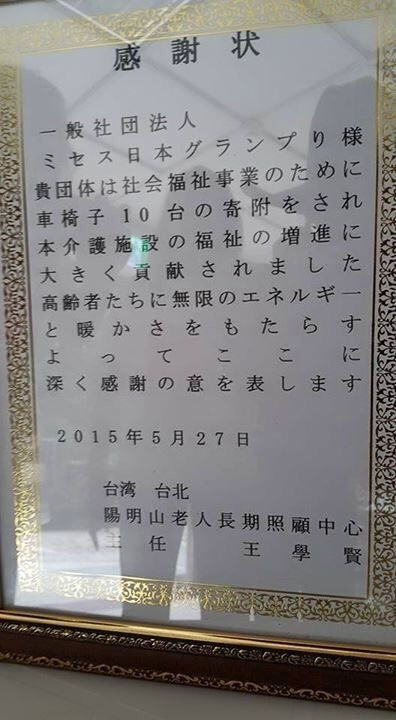 感謝状
一般社団法人
ミセス日本グランプり様
貴団体は社会福祉事業のために
車椅子10台の寄附をされ
本介護施設の福祉の増進に
大きく貢献されました
高齢者たちに無限のエネルギー
と暖かさをもたらす
よってここに
深く感謝の意を表します
2015年5月27日
台湾 台北
陽明山老人長期照顧中心
主任 王學賢